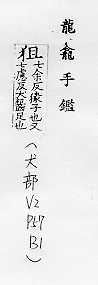 龍龕手鑑
狙七余反猨子也又
七慮反犬齧足也
(犬部 V2
P57
B1)